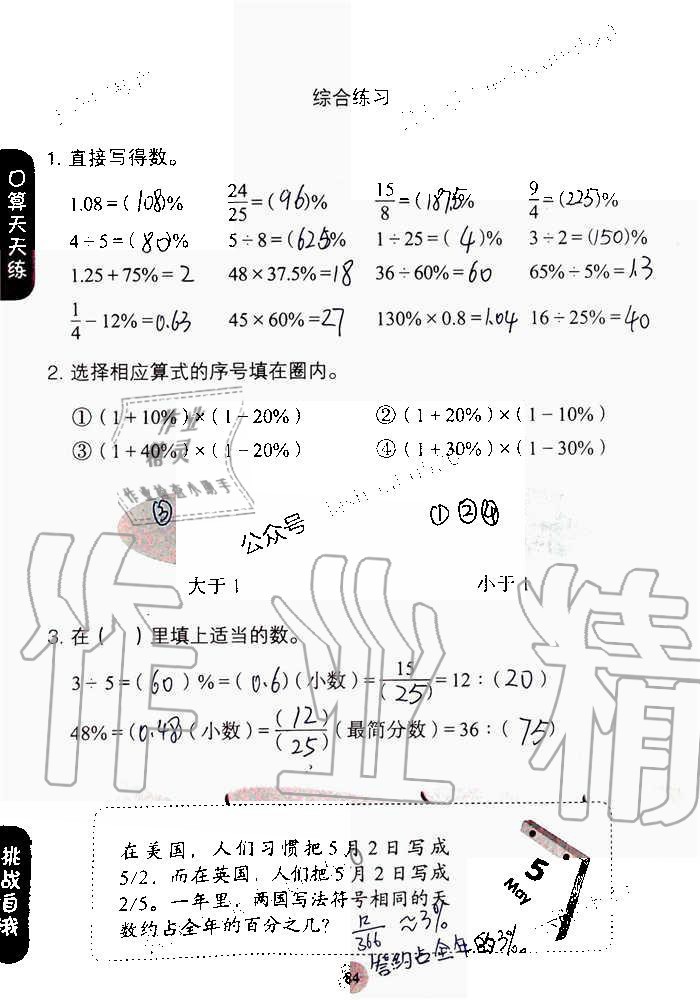 综合练习
口算天天练
1. 直接写得数。
1.08=(108)% 24/25=(96)% 15/8=(187.5)% 9/4=(225)%
4÷5=(80)% 5÷8=(62.5)% 1÷25=(4)% 3÷2=(150)%
1.25+75%=2 48×37.5%=18 36÷60%=60 65%÷5%=13
1/4-12%=0.63 45×60%=27 130%×0.8=1.04 16÷25%=40
2. 选择相应算式的序号填在圈内。
①(1+10%)×(1-20%) ②(1+20%)×(1-10%)
③(1+40%)×(1-20%) ④(1+30%)×(1-30%)
作业
精灵
作业检查小助手
③ ①②④
公众号
大于1 小于1
3. 在( )里填上适当的数。
3÷5=(60)%=(0.6)(小数)=15/(25)=12:(20)
48%=(0.48(小数)=(12)/(25)(最简分数)=36:(75)
作业精
挑战自我
在美国，人们习惯把5月2日写成
5/2，而在英国，人们把5月2日写成
2/5。一年里，两国写法符号相同的天
数约占全年的百分之几？ 12/366≈3%
答约占全年的3%.
5
May
84